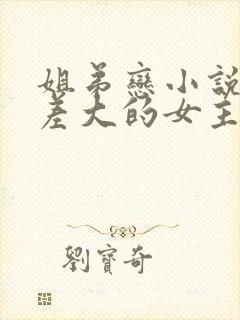 姐弟戀小說
差大的女主
劉寶奇